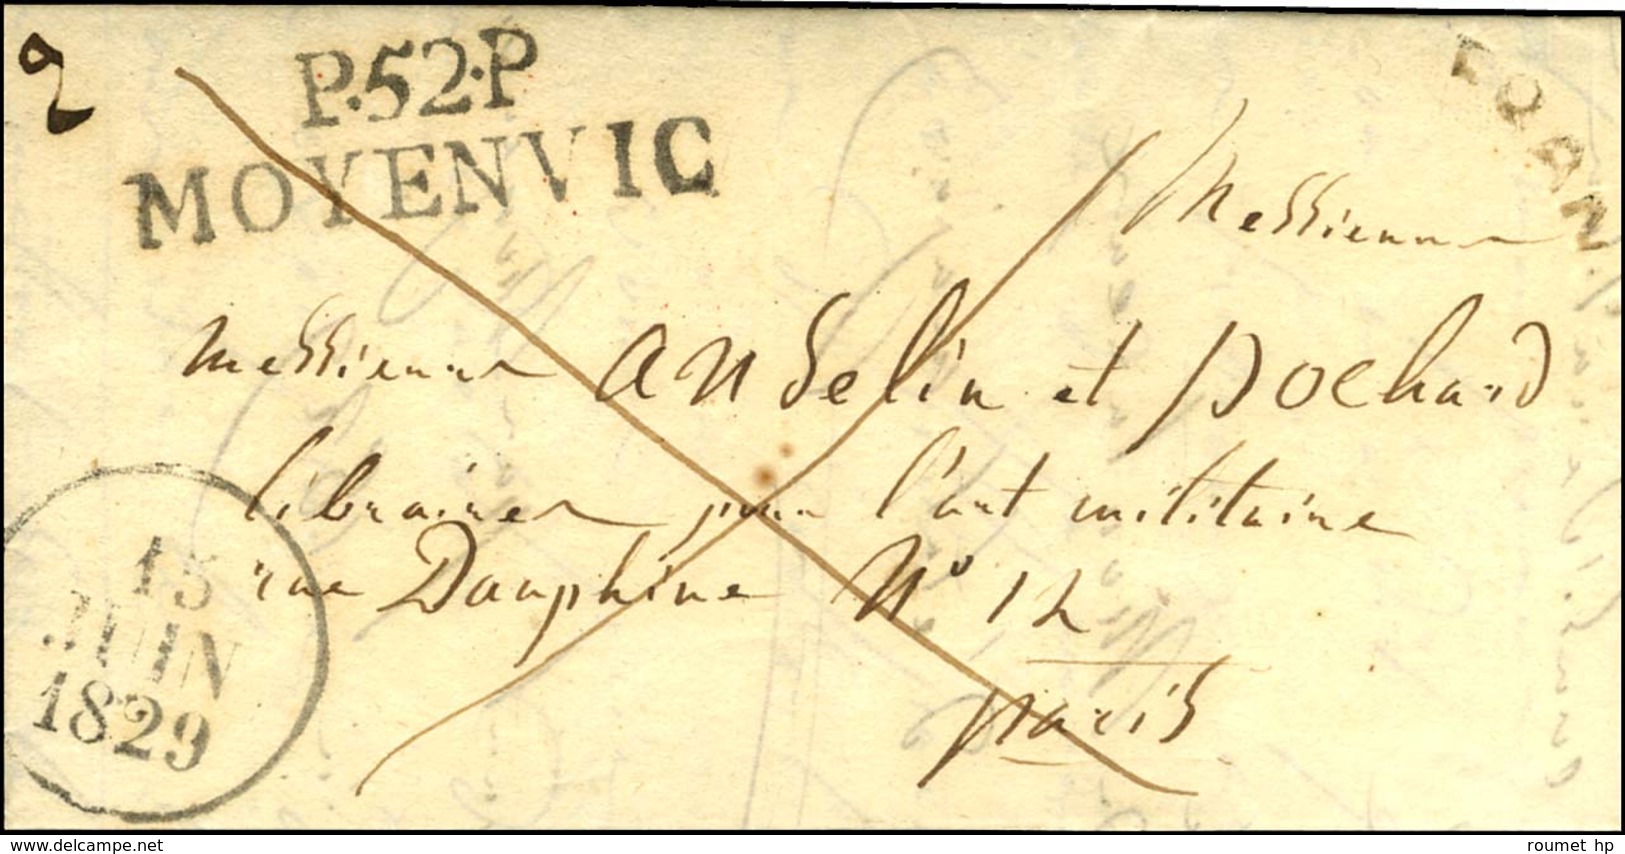 2
P.52.P
MOYENVIC
FORAN
Messieurs
messieurs anselin et pochard
libraires pour l'art militaire
rue Dauphine N° 12
paris
15
JUIN
1829
delcampe.net
roumet hp